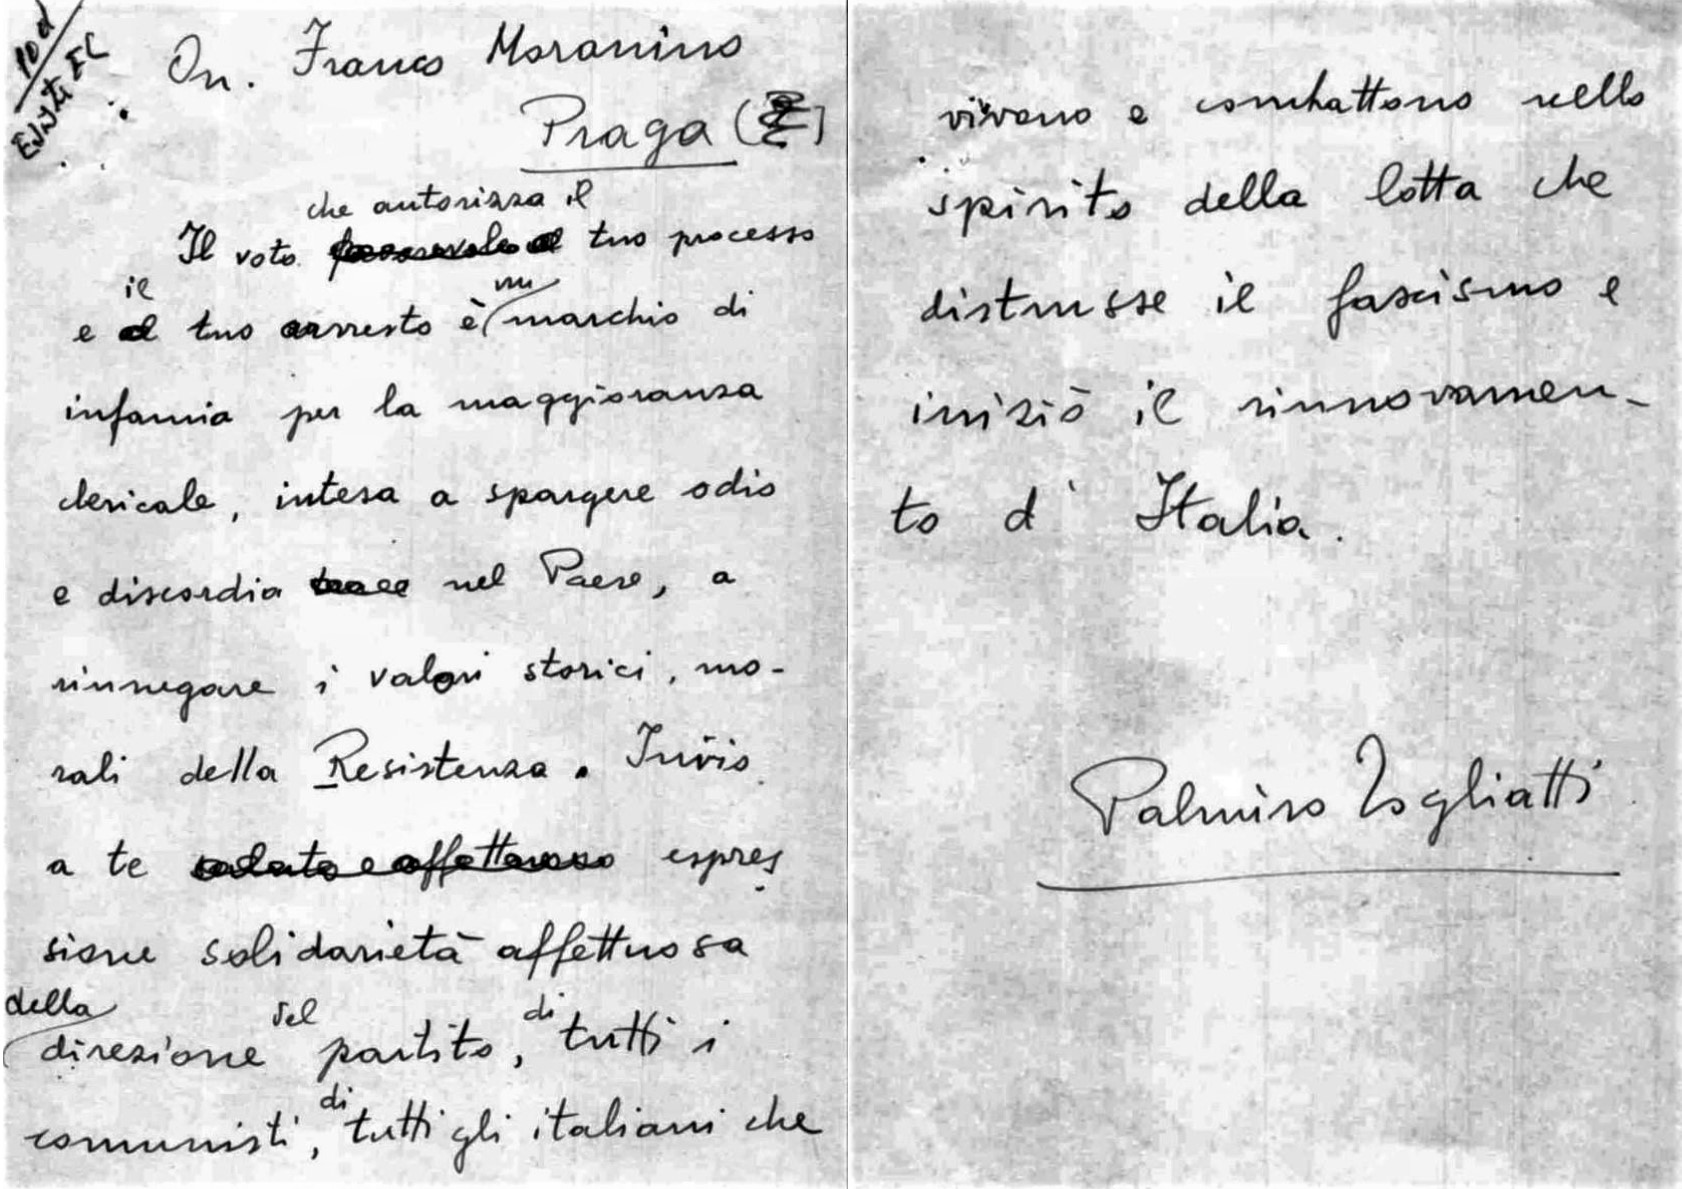 10 d
On. Franco Moranino
Praga
che autorizza il
Il voto favorevole al tuo processo
il
un
e al tuo arresto è marchio di
infamia per la maggioranza
clericale, intesa a spargere odio
e discordia nel Paese, a
rinnegare i valori storici, mo-
rali della Resistenza. Invio
a te saluto e affettuoso espres
sione solidarietà affettuosa
della del di
direzione partito, tutti i
di
comunisti, tutti gli italiani che
vivono e combattono nello
spirito della lotta che
distrusse il fascismo e
iniziò il rinnovamen-
to d'Italia.
Palmiro Togliatti